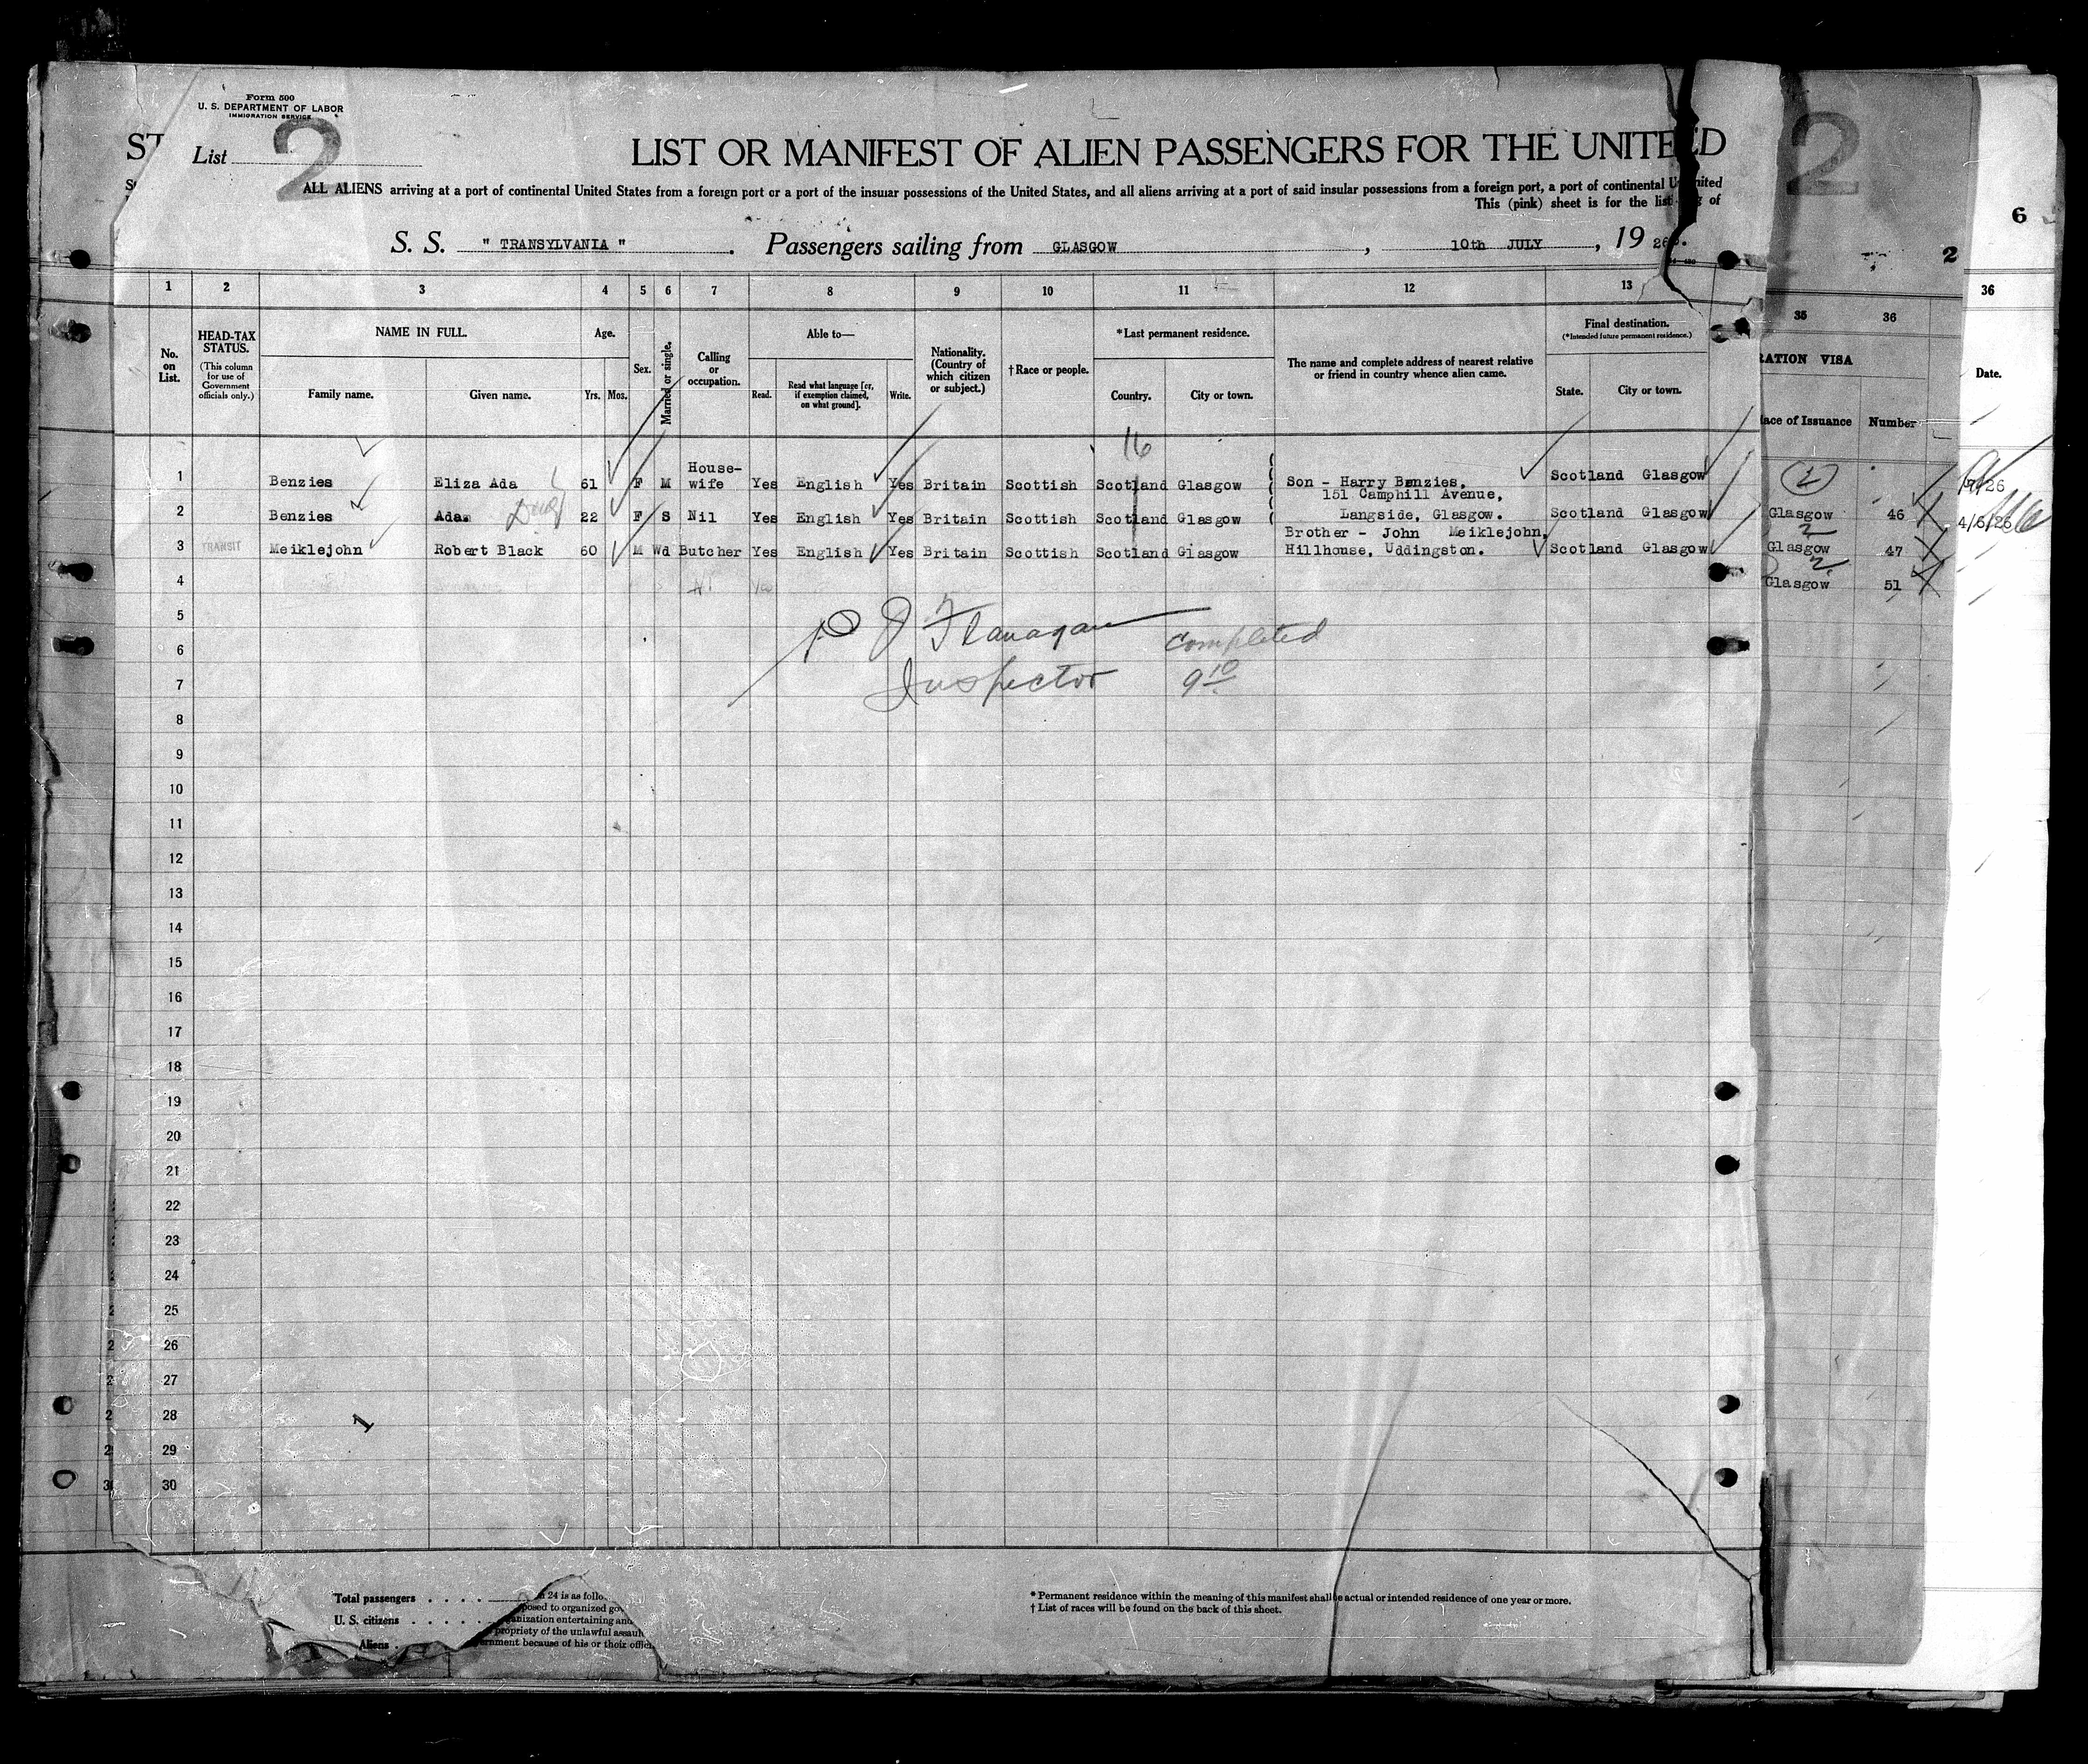 Form 500
U. S. DEPARTMENT OF LABOR
IMMIGRATION SERVICE
ST
List 2
LIST OR MANIFEST OF ALIEN PASSENGERS FOR THE UNITED
2
6
ALL ALIENS arriving at a port of continental United States from a foreign port or a port of the insular possessions of the United States, and all aliens arriving at a port of said insular possessions from a foreign port, a port of continental United
This (pink) sheet is for the listing of
S. S. " TRANSYLVANIA " . Passengers sailing from GLASGOW , 10th JULY , 19 26.
2
1 2 3 4 5 6 7 8 9 10 11 12 13
35 36
36
No. on List.
HEAD-TAX STATUS.
(This column for use of Government officials only.)
NAME IN FULL.
Family name. Given name.
Age.
Yrs. Mos.
Sex.
Married or single.
Calling or occupation.
Able to—
Read. Read what language [or, if exemption claimed, on what ground]. Write.
Nationality. (Country of which citizen or subject.)
† Race or people.
*Last permanent residence.
Country. City or town.
The name and complete address of nearest relative or friend in country whence alien came.
Final destination.
(*Intended future permanent residence.)
State. City or town.
RATION VISA
lace of Issuance Number
Date.
16
1 Benzies Eliza Ada 61 F M House-wife Yes English Yes Britain Scottish Scotland Glasgow Son - Harry Benzies, Scotland Glasgow
151 Camphill Avenue,
2 Benzies Ada 22 F S Nil Yes English Yes Britain Scottish Scotland Glasgow Langside, Glasgow. Scotland Glasgow
Brother - John Meiklejohn,
3 TRANSIT Meiklejohn Robert Black 60 M Wd Butcher Yes English Yes Britain Scottish Scotland Glasgow Hillhouse, Uddingston. Scotland Glasgow
2
Glasgow 46
4/6/26
2
Glasgow 47
2
Glasgow 51
4
5
P J Flanagan completed
6
Inspector 9 10
7
8
9
10
11
12
13
14
15
16
17
18
19
20
21
22
23
24
25
26
27
28
29
30
1
Total passengers
U. S. citizens
Aliens
24 is as follo
posed to organized go
anization entertaining and
propriety of the unlawful assaul
ernment because of his or their offic
* Permanent residence within the meaning of this manifest shall be actual or intended residence of one year or more.
† List of races will be found on the back of this sheet.